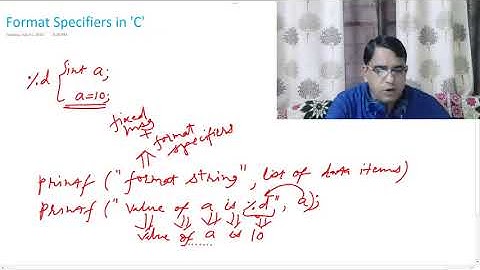 Format Specifiers in 'C'
%d { int a;
a=10;
fixed
msg
+
format
specifiers
printf ("format string", list of data items)
printf ("value of a is %d", a);
value of a is 10